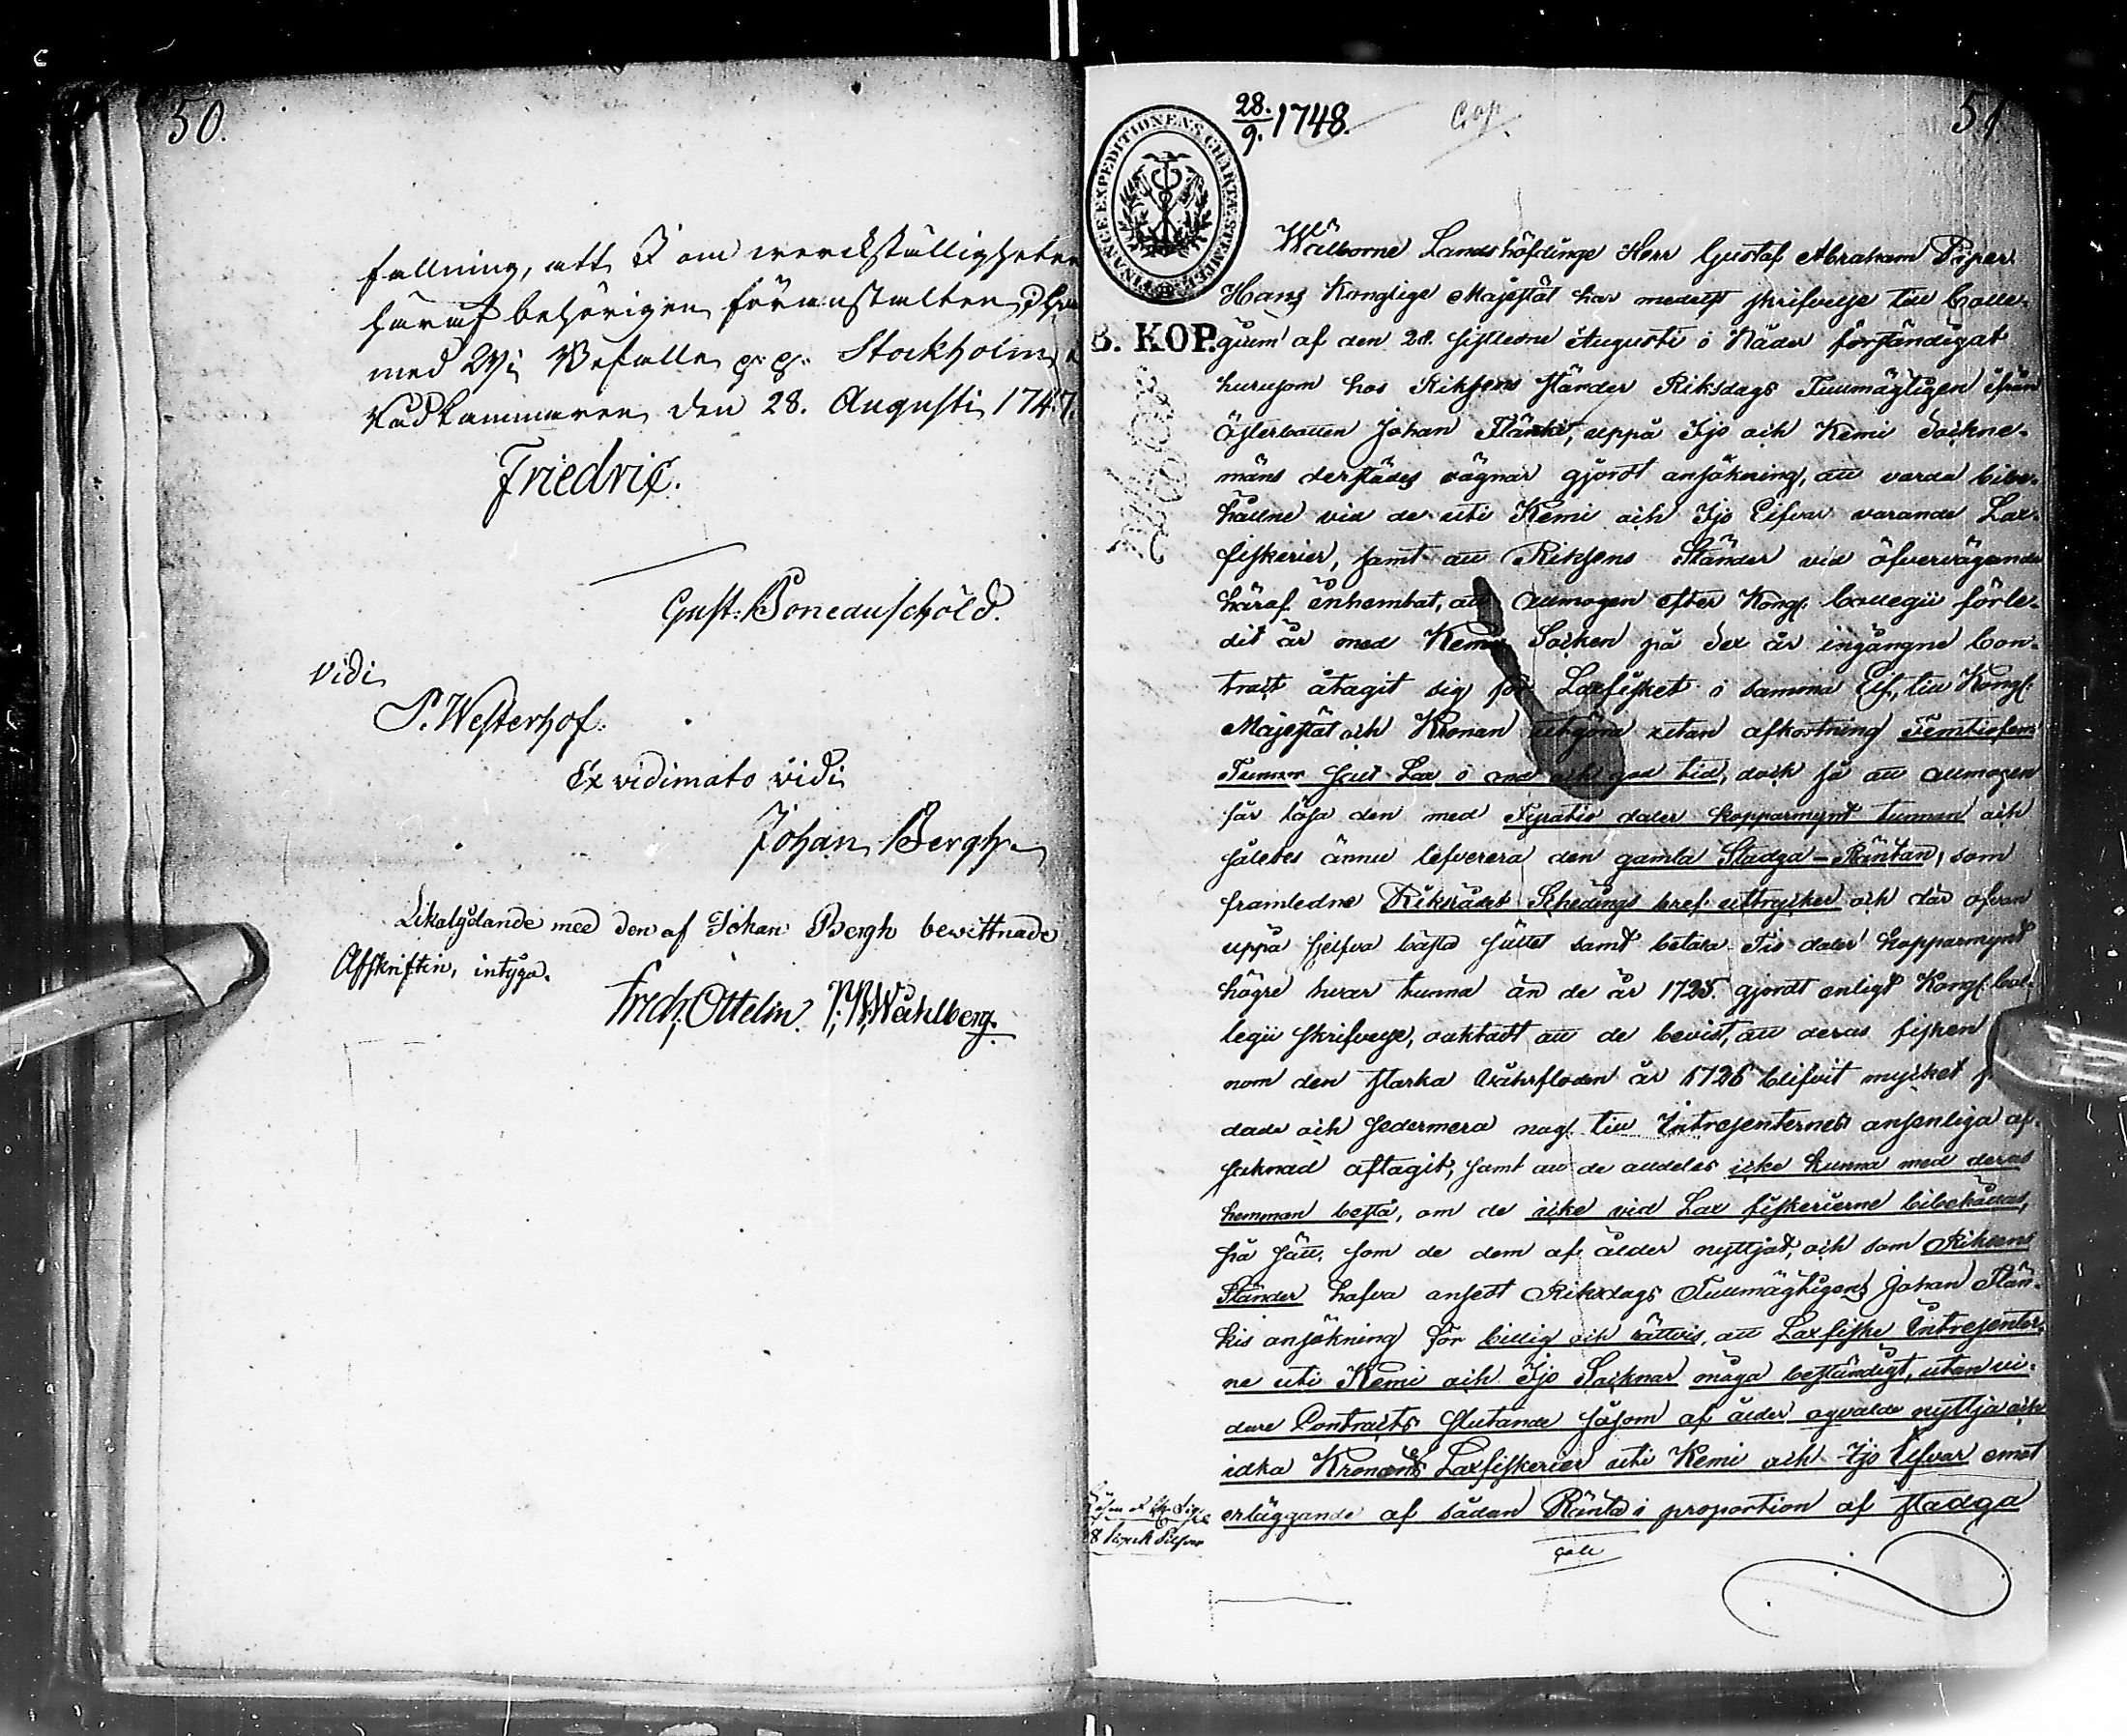 50.
fallning, att I om werckställigheten
häraf behörigen föranstalten
med Wi Befalle p. p. Stockholm
Rådkammaren den 28. Augusti 1747.
Friedric.
Gust: Boneauschöld.
vidi
P. Westerhof.
Ex vidimato vidi
Johan Bergh
Likalydande med den af Johan Bergh bewittnade
Afskriften, intyga.
Fredr. Ottelin. P. W. Wahlberg.
28./9. 1748.
Cop.
51
FINANCE EXPEDITIONENS CHARTÆ STEMPEL
B. KOP.
Wälborne Landshöfdinge Herr Gustaf Abraham Piper.
Hans Konglige Majestät har medelst skrifvelse till Colle-
gium af den 28. sistledne Augusti i Nåder förständigat
hurusom hos Riksens Ständer Riksdags Fullmägtigen ifrån
Österbotten Johan Flänki, uppå Ijo och Kemi Sockne-
mäns derstädes vägnar gjordt ansökning, att varda bibe-
hållne vid de uti Kemi och Ijo Elfvar varande Lax-
fiskerier, samt att Riksens Ständer vid öfvervägande
häraf inhemtat, att Allmogen efter Kongl. Collegii förle-
dit år med Kemi Socken på Sex år ingångne Con-
tract åtagit sig för Laxfisket i samma Elf, till Kongl.
Majestät och Kronan utgöra utan afkortning Femtiofem
Tunnor full Lax i ond och god tid, dock så att Allmogen
får lösa den med Tiratio daler kopparmynt tunnan och
således ännu lefverera den gamla Stadga-Räntan, som
framledne Riksrådet Schedings bref uttrycker och där ofvan
uppå sjelfva bästa sättet samt betala Tio daler kopparmynt
högre hvar tunna än de år 1725. gjordt enligt Kongl. Col-
legii skrifvelse, oaktadt att de bevist, att deras fisken
nom den starka Vårfloden år 1726 blifvit mycket
dade och sedermera nog till Intressenternes ansenliga af-
saknad aftagit, samt att de alldeles icke kunna med deras
hemman bestå, om de icke vid Lax fiskerierne bibehållas,
på sätt som de dem af ålder nyttjat, och som Riksens
Ständer hafva ansedt Riksdags Fullmägtigens Johan Flän-
kis ansökning för billig och rättvis, att Laxfiske Intressenter-
ne uti Kemi och Ijo Socknar måga beständigt, utan vi-
dare Contracts slutande såsom af ålder ogvalde nyttja och
idka Kronans Laxfiskerier uti Kemi och Ijo Elfvar emot
erläggande af sådan Ränta i proportion af stadga